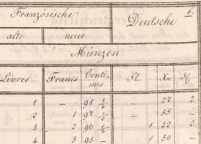 Französische Deutsche 6.
alte neue
Münzen
Livres Francs Centi- fl. Xr.
1 — 98 27 2
2 1 97 55
3 2 96 1 22 2
4 3 95 1 50